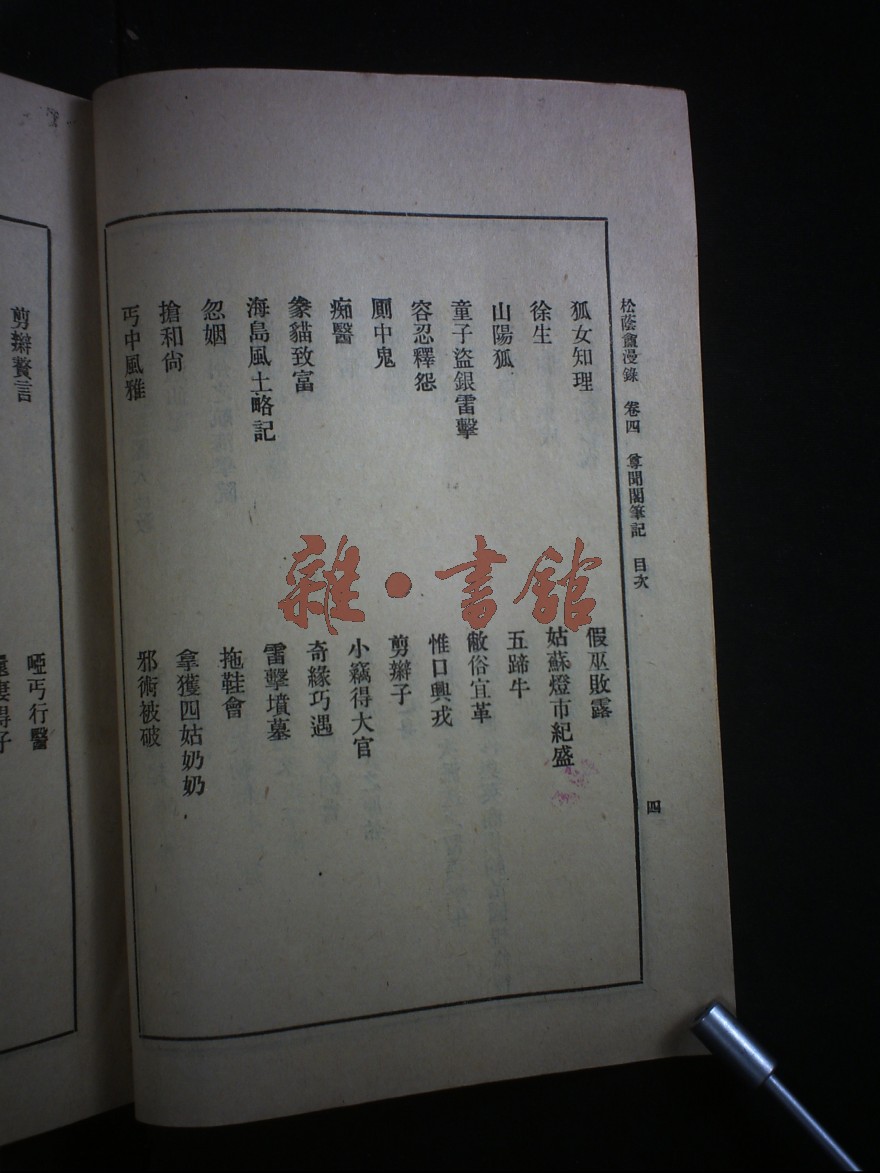 松蔭盦漫錄 卷四 尊聞閣筆記 目次
四
狐女知理
假巫敗露
徐生
姑蘇燈市紀盛
山陽狐
五蹄牛
童子盜銀雷擊
敝俗宜革
容忍釋怨
惟口興戎
厠中鬼
剪辮子
痴醫
小竊得大官
豢貓致富
奇緣巧遇
海島風土略記
雷擊墳墓
忽姻
拖鞋會
搶和尙
拿獲四姑奶奶
丐中風雅
邪術被破
剪辮贅言
啞丐行醫
得子
雜·書館